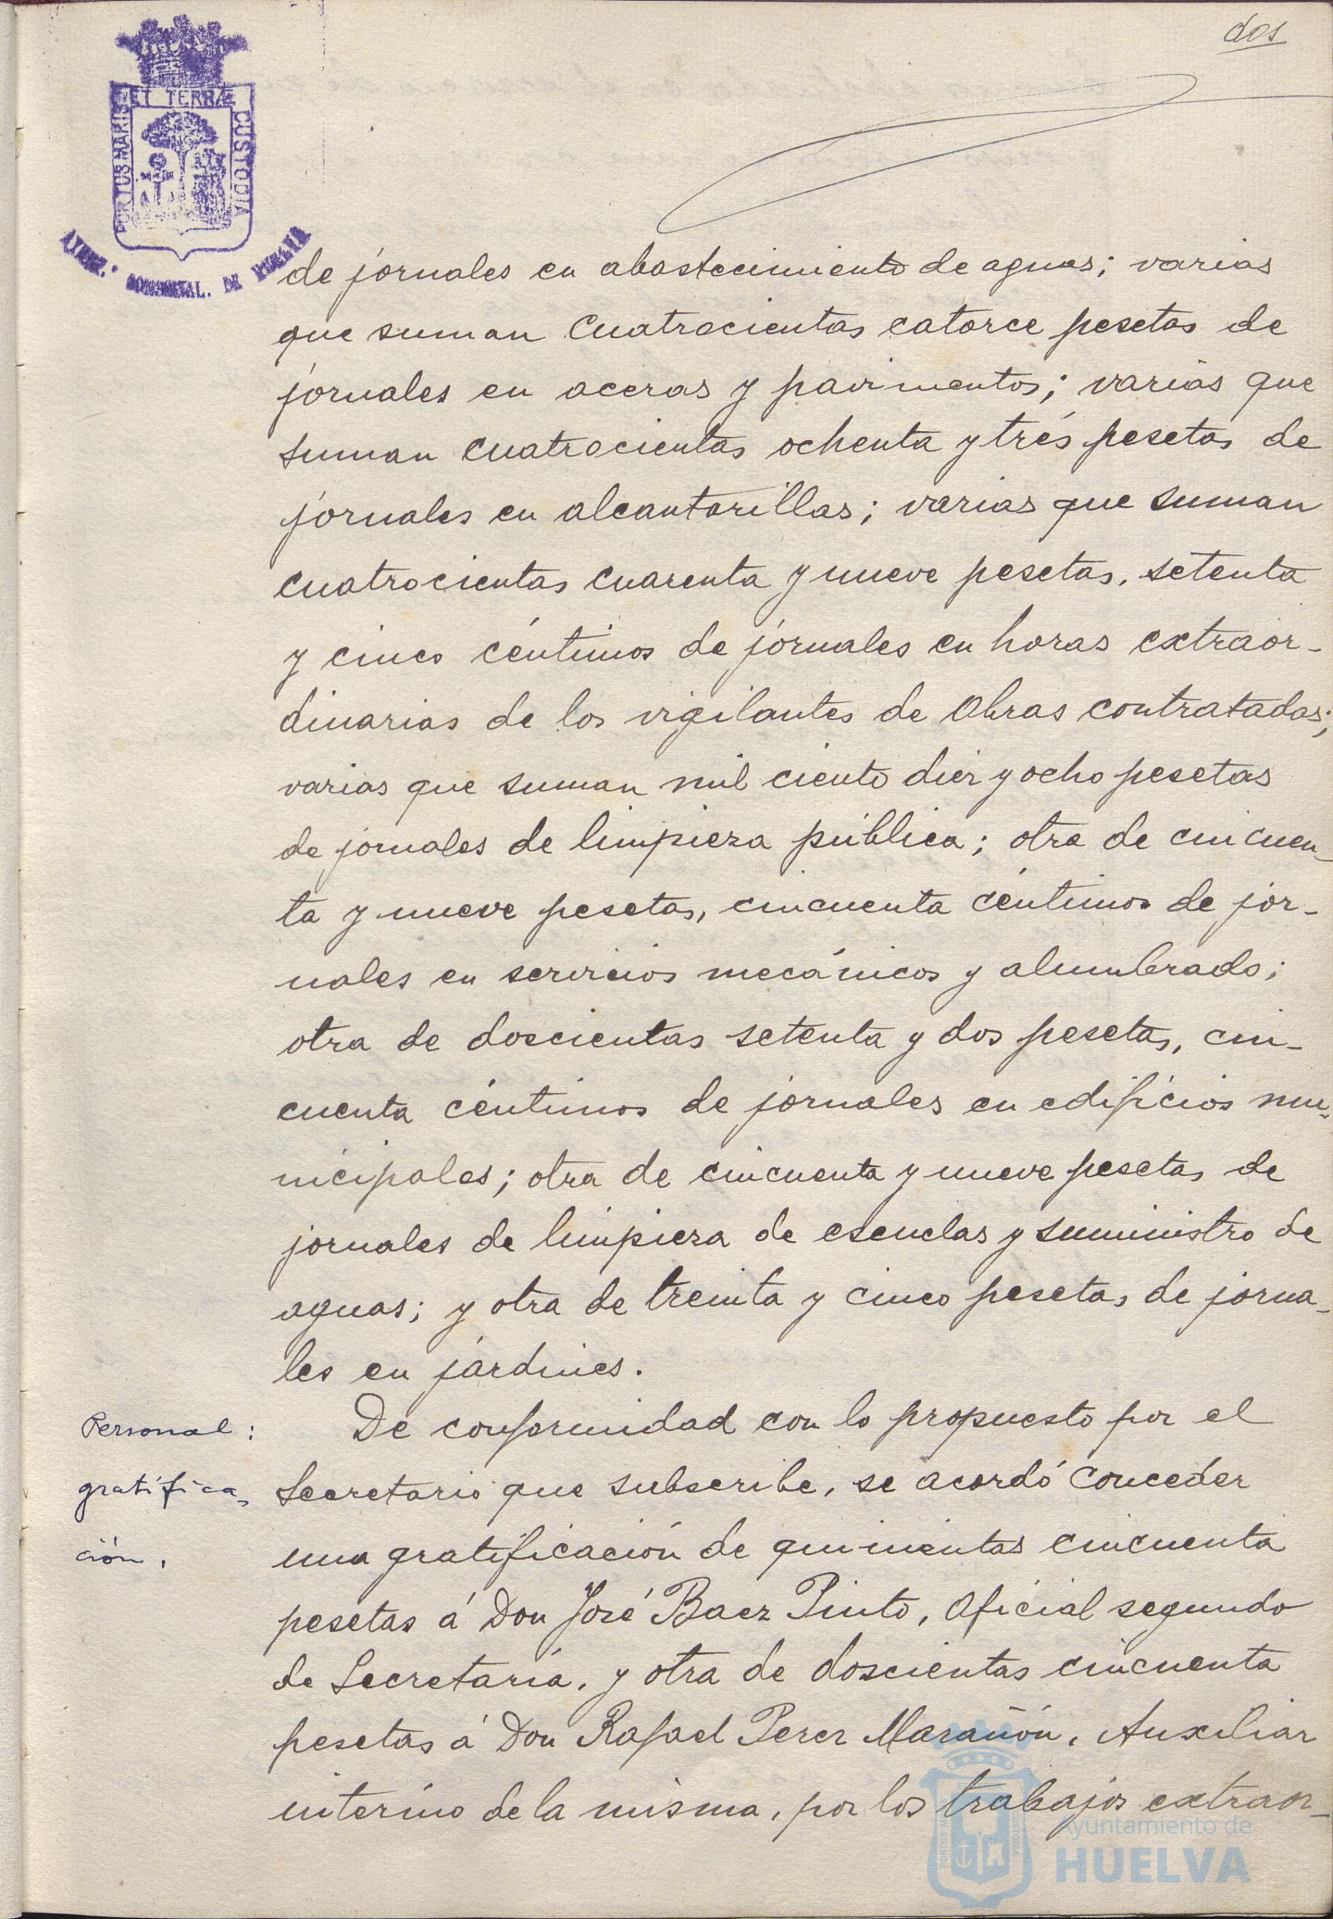 dos
PORTUS MARIS ET TERRÆ CUSTODIA
de jornales en abastecimiento de aguas; varias
que suman cuatrocientas catorce pesetas de
jornales en aceras y pavimentos; varias que
suman cuatrocientas ochenta y trés pesetas de
jornales en alcantarillas; varias que suman
cuatrocientas cuarenta y nueve pesetas, setenta
y cinco céntimos de jornales en horas extraor-
dinarias de los vigilantes de Obras contratadas;
varias que suman mil ciento diez y ocho pesetas
de jornales de limpieza pública; otra de cincuen-
ta y nueve pesetas, cincuenta céntimos de jor-
nales en servicios mecánicos y alumbrado;
otra de doscientas setenta y dos pesetas, cin-
cuenta céntimos de jornales en edificios mu-
nicipales; otra de cincuenta y nueve pesetas de
jornales de limpieza de escuelas y suministro de
aguas; y otra de treinta y cinco pesetas de jorna-
les en jardines.
Personal:
gratifica-
ción.
De conformidad con lo propuesto por el
Secretario que subscribe, se acordó conceder
una gratificación de quinientas cincuenta
pesetas á Don José Baez Pinto, Oficial segundo
de Secretaría, y otra de doscientas cincuenta
pesetas á Don Rafael Perez Marañón, Auxiliar
interino de la misma, por los trabajos extraor-
Ayuntamiento de
HUELVA